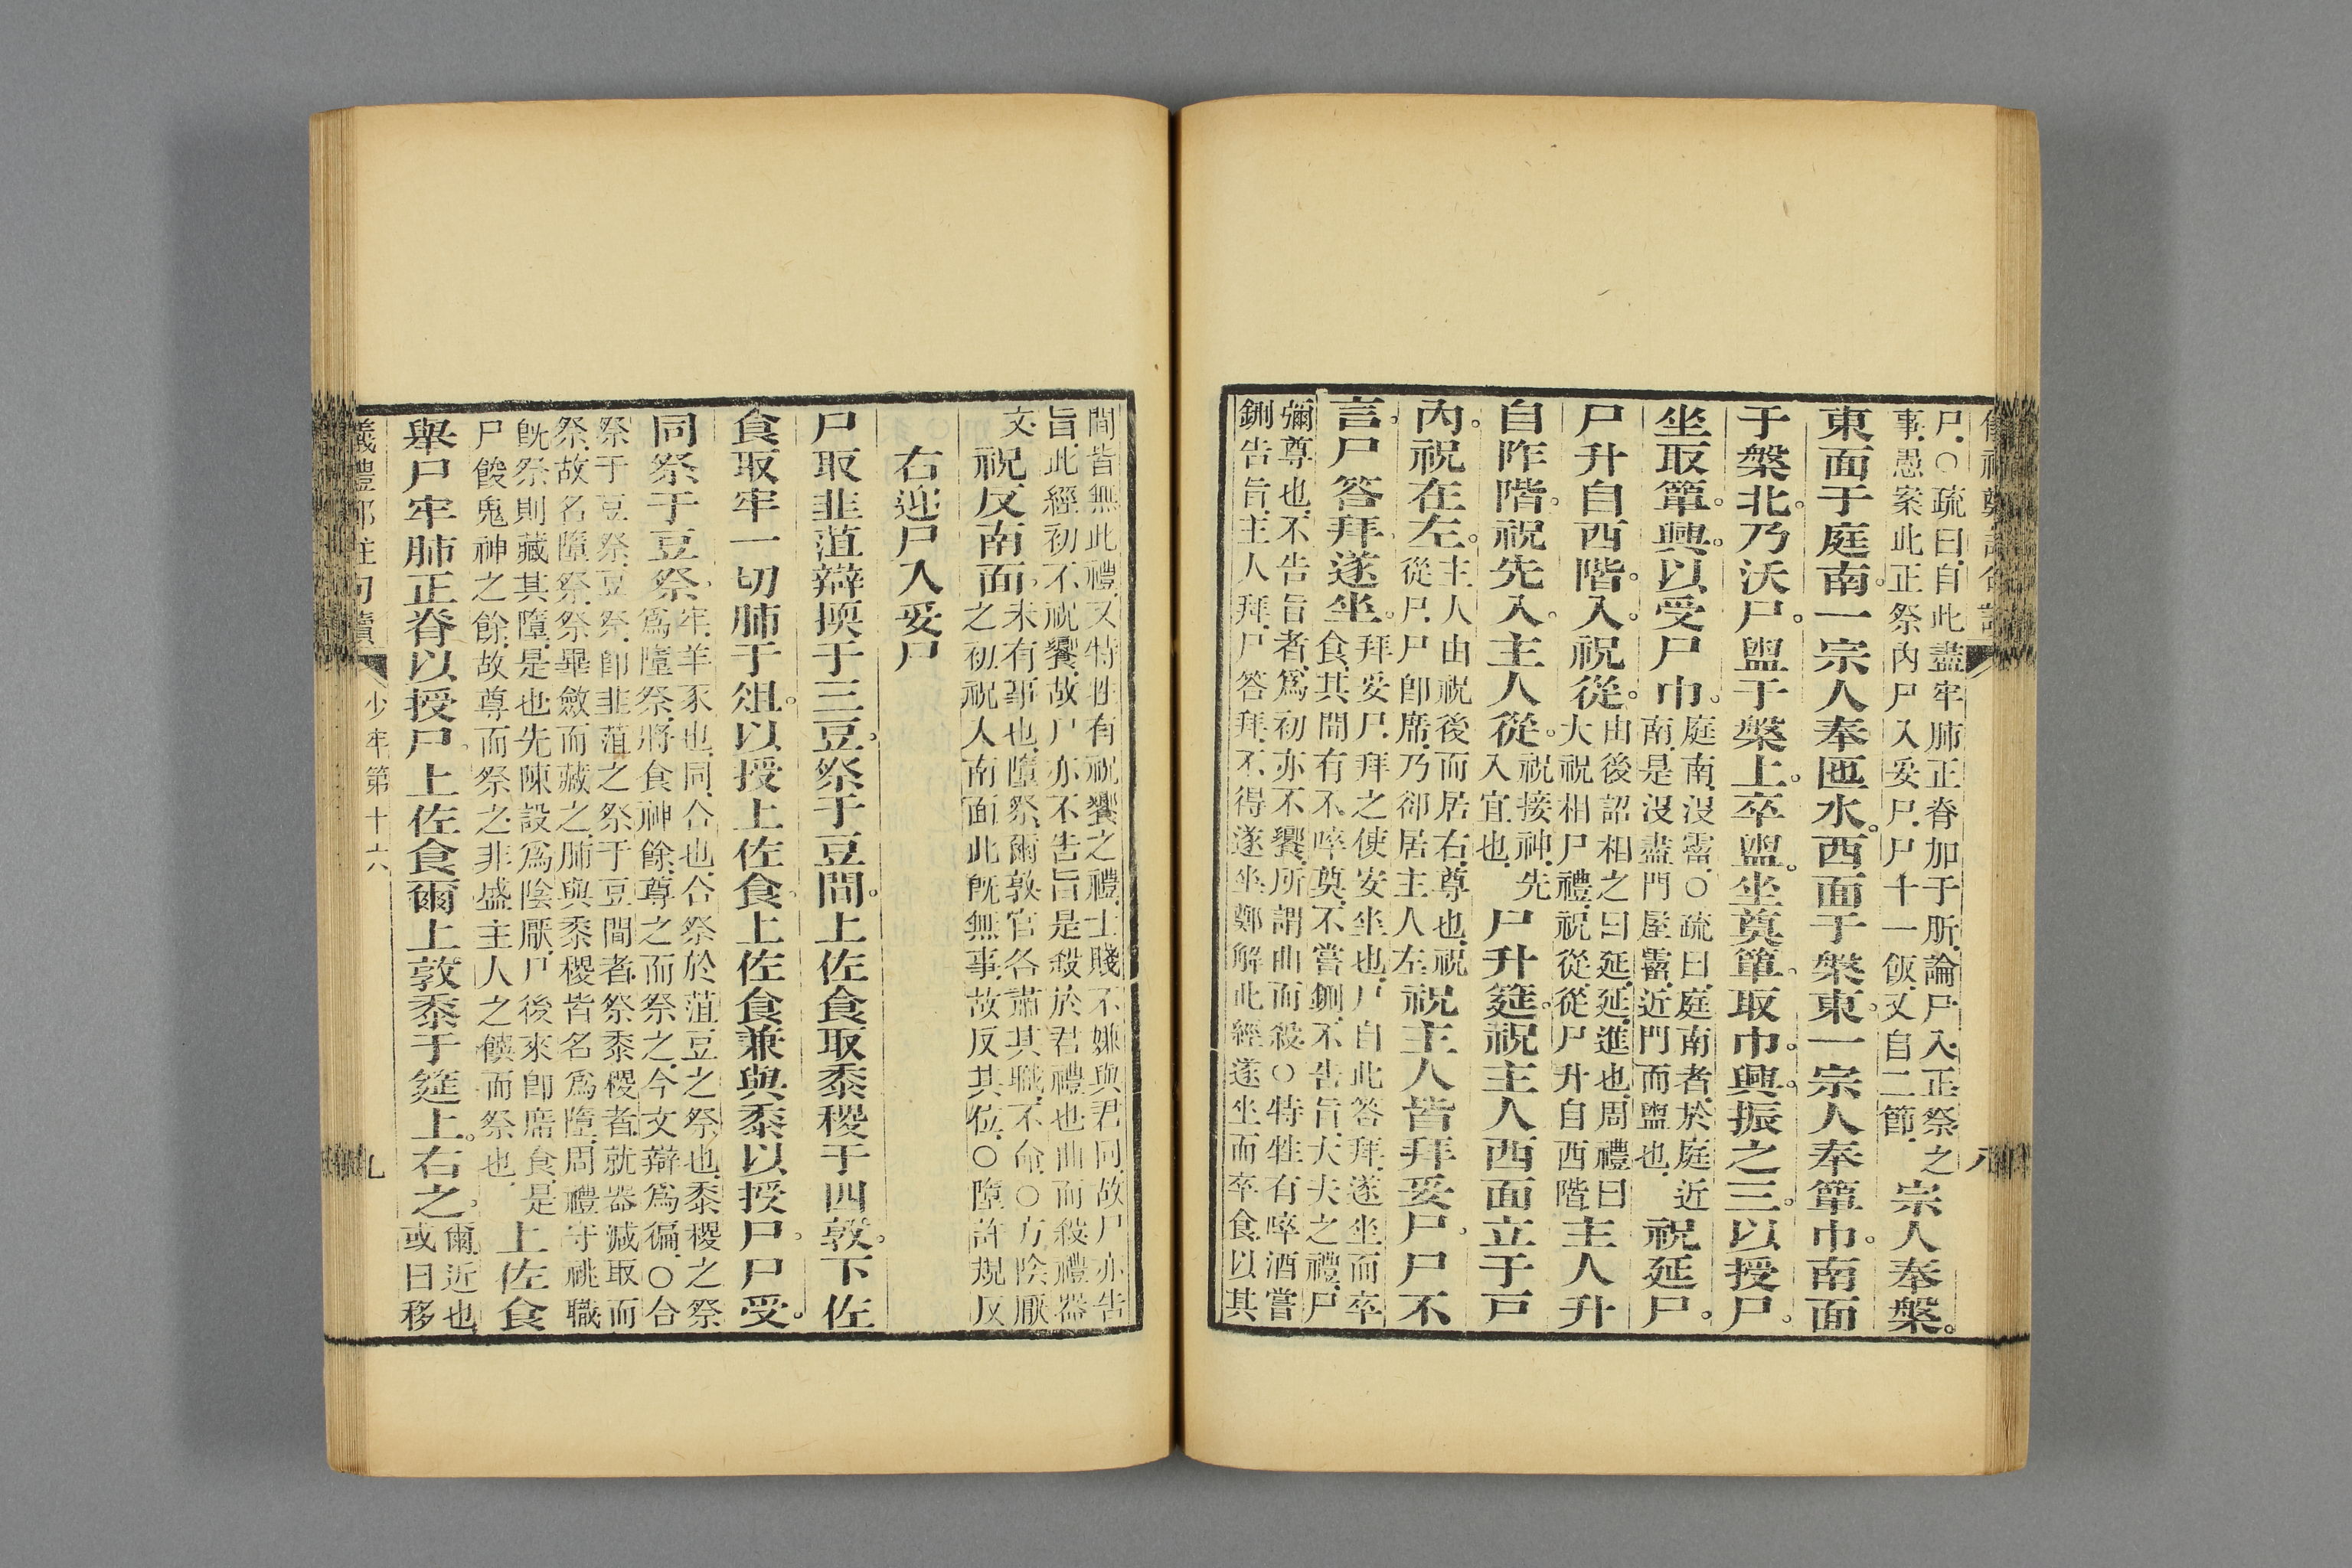 尸○疏曰自此盡牢肺正脊加于肵論尸入正祭之
事愚案此正祭內尸入妥尸尸十一飯又自二節
宗人奉槃。
東面于庭南。一宗人奉匜水。西面于槃東。一宗人奉簞巾。南面
于槃北。乃沃尸。盥于槃上。卒盥。坐奠簞。取巾。興。振之三。以授尸。
坐取簞。興。以受尸巾。
庭南沒霤○疏曰庭南者於庭近
南是沒盡門屋霤近門而盥也
祝延尸。
尸升自西階。入。祝從。
由後詔相之曰延延進也周禮曰
大祝相尸禮祝從從尸升自西階
主人升
自阼階。祝先入。主人從。
祝接神先
入宜也
尸升筵。祝主人西面立于戶
內。祝在左。
主人由祝後而居右尊也祝
從尸尸卽席乃卻居主人左
祝主人皆拜妥尸。尸不
言。尸答拜。遂坐。
拜妥尸拜之使安坐也尸自此答拜遂坐而卒
食其間有不啐奠不嘗鉶不告旨大夫之禮尸
彌尊也不告旨者爲初亦不饗所謂曲而殺○特牲有啐酒嘗
鉶告旨主人拜尸答拜不得遂坐鄭解此經遂坐而卒食以其
間皆無此禮又特牲有祝饗之禮士賤不嫌與君同故尸亦告
旨此經初不祝饗故尸亦不告旨是殺於君禮也曲而殺禮器
文
祝反南面。
未有事也墮祭爾敦官各肅其職不命○方陰厭
之初祝人南面此旣無事故反其位○墮許規反
右迎尸入妥尸
尸取韭菹辯擩于三豆。祭于豆間。上佐食取黍稷于四敦。下佐
食取牢一切肺于俎。以授上佐食。上佐食兼與黍以授尸。尸受。
同祭于豆祭。
牢羊豕也同合也合祭於菹豆之祭也黍稷之祭
爲墮祭將食神餘尊之而祭之今文辯爲徧○合
祭于豆祭豆祭卽韭菹之祭于豆間者祭黍稷者就器減取而
祭故名墮祭祭畢斂而藏之肺與黍稷皆名爲墮周禮守祧職
旣祭則藏其墮是也先陳設爲陰厭尸後來卽席食是
尸餕鬼神之餘故尊而祭之非盛主人之饌而祭也
上佐食
舉尸牢肺正脊以授尸。上佐食爾上敦黍于筵上。右之。
爾近也
或曰移
少牢第十六
九